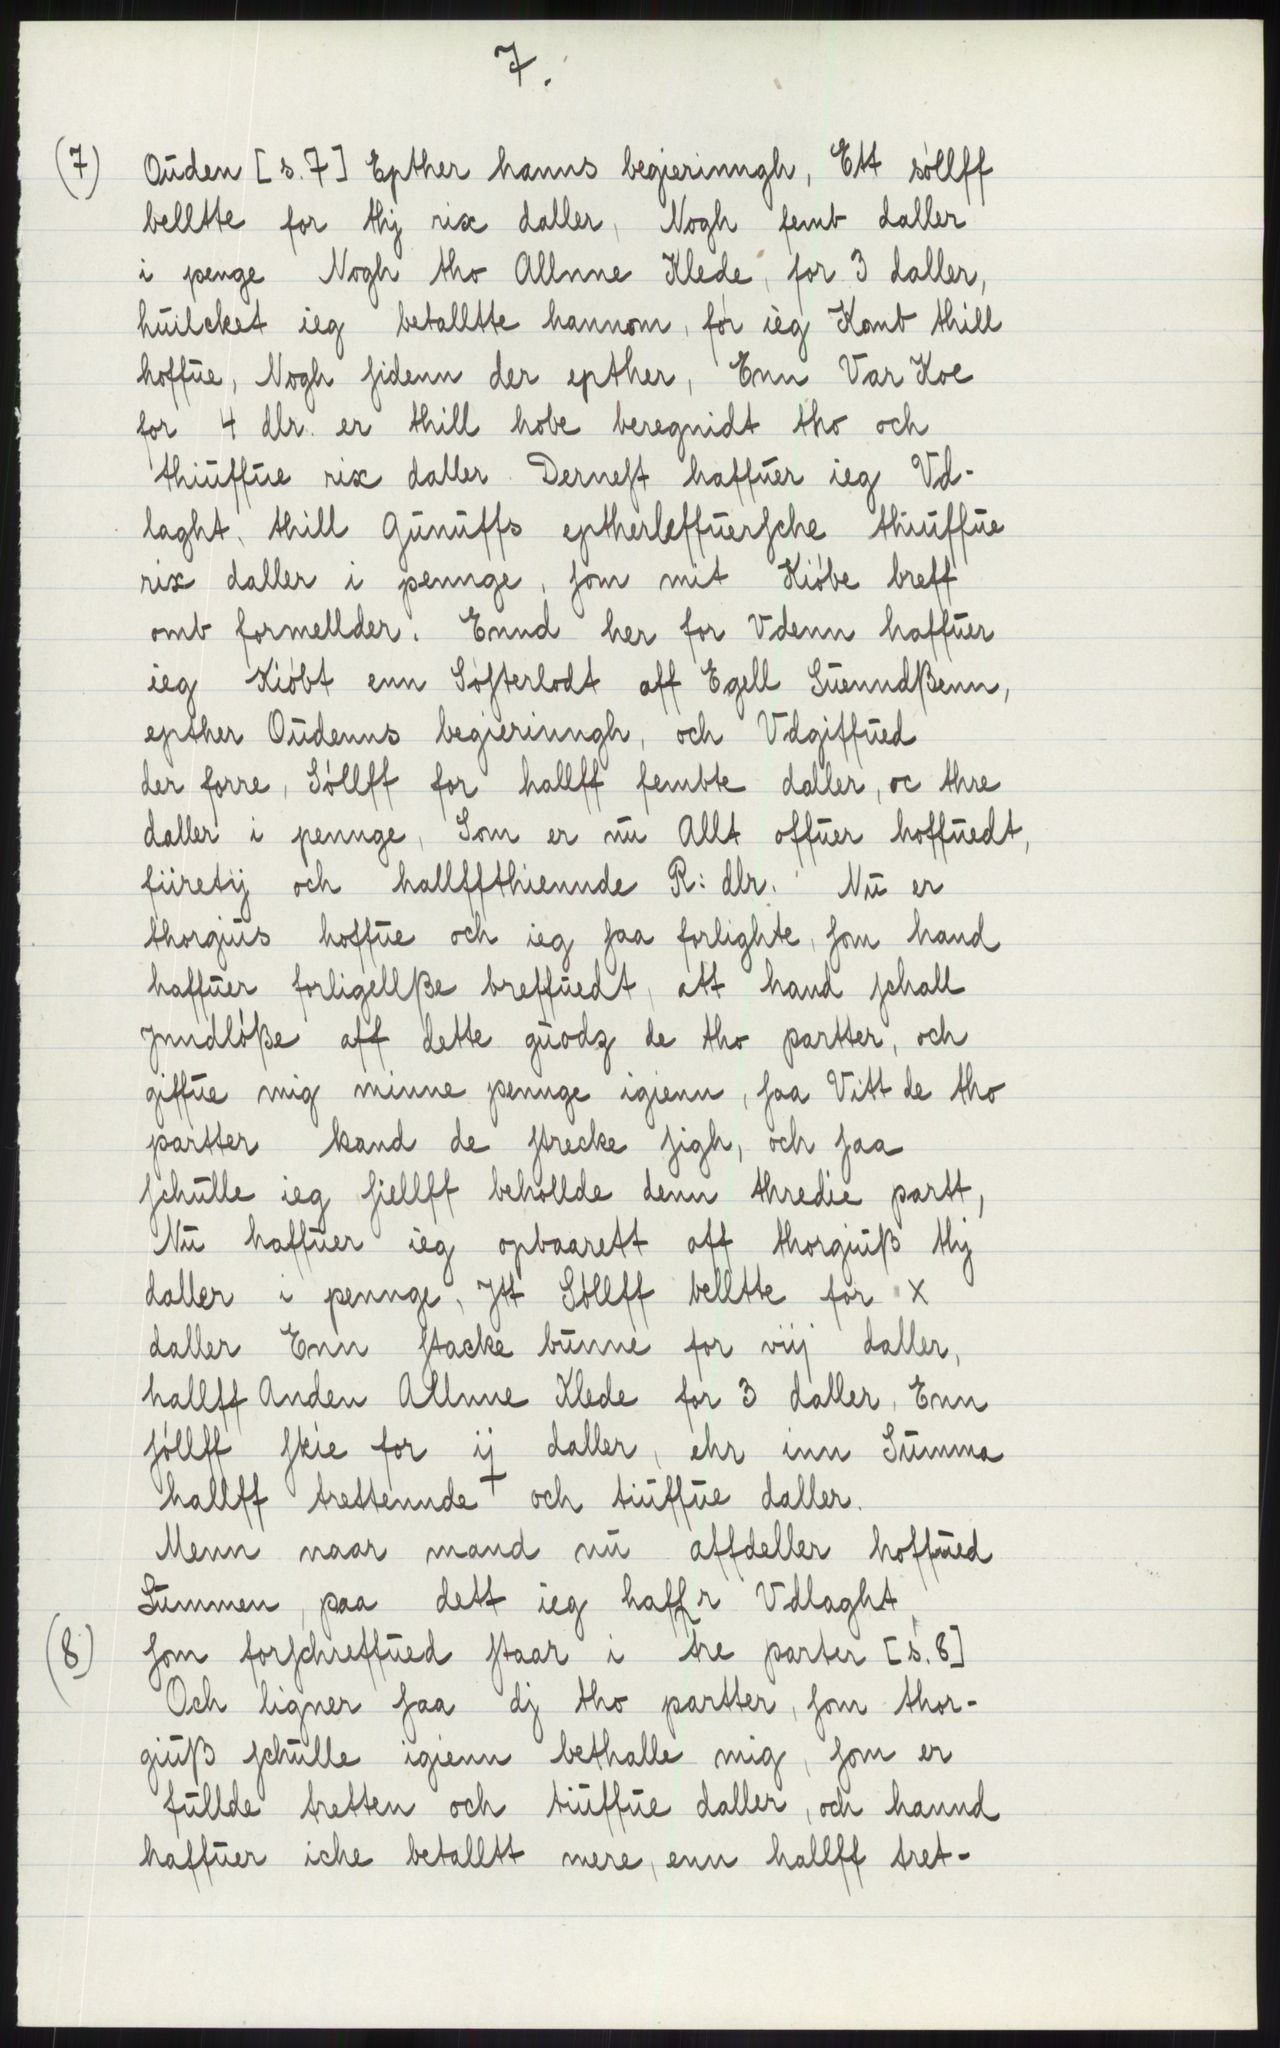 7.
(7) Ouden [s. 7] Epther hanns begierinngh, Ett søllff
belltte for thj rix daller, Nogh femb daller
i penge Nogh tho Allnne Klede, for 3 daller,
huilcket ieg betalltte hannom, før ieg Komb thill
hoffue, Nogh sidenn der epther, Enn Var Koe
for 4 dlr. er thill hobe beregnidt tho och
thiuffue rix daller. Dernest haffuer ieg Vd-
laght, thill Gunuffs eptherleffuersche thiuffue
rix daller i pennge, som mit Kiøbe breff
omb formellder. Ennd her for Vdenn haffuer
ieg Kiøbt enn Søsterlodt aff Egell Suenndßenn,
epther Oudenns begierinngh, och Vdgiffued
der forre, Søllff for hallff fembte daller, oc thre
daller i pennge, Som er nu Allt offuer hoffuedt,
fiiretij och hallffthiennde R: dlr. Nu er
thorgius hoffue och ieg saa forlighte, som hand
haffuer forligellße breffuedt, att hand schall
Jnndløße aff dette guodz de tho partter, och
giffue mig minne pennge igienn, saa Vitt de tho
partter kand de strecke sigh, och saa
schulle ieg siellff behollde denn thredie partt,
Nu haffuer ieg opbaarett aff thorgiuß thj
daller i pennge, Jtt Søllff belltte for x
daller Enn stacke bunne for viij daller,
hallff Anden Allnne Klede for 3 daller, Enn
søllff skie for ij daller, ehr inn Summa
hallff trettennde + och tiuffue daller.
Menn naar mand nu affdeller hoffued
Summen, paa dett ieg haffr Vdlaght,
(8) som forschreffued staar i tre parter [s. 8]
Och ligner saa dj tho partter, som thor-
giuß schulle igienn bethalle mig, som er
fullde tretten och tiuffue daller, och hannd
haffuer iche betalltt mere, enn hallff tret-